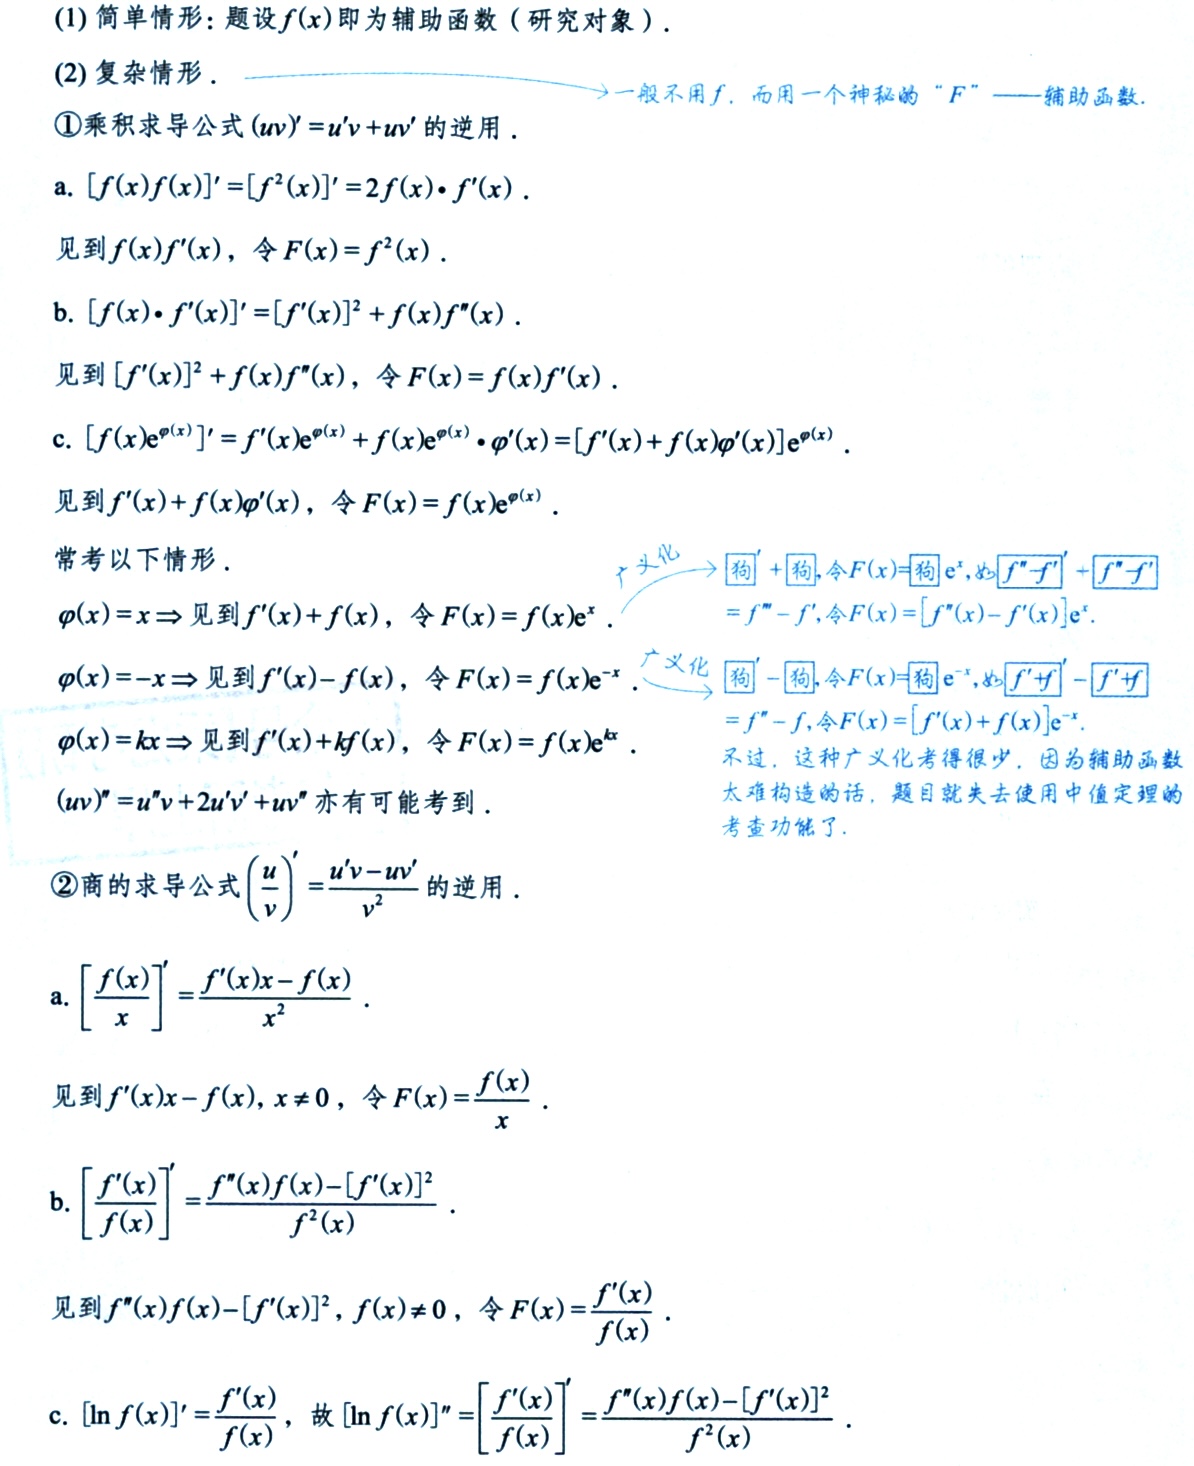 (1) 简单情形：题设f(x)即为辅助函数（研究对象）.
(2) 复杂情形.
一般不用f, 而用一个神秘的“F”——辅助函数.
①乘积求导公式(uv)′=u′v+uv′的逆用.
a. [f(x)f(x)]′=[f²(x)]′=2f(x)•f′(x).
见到f(x)f′(x)，令F(x)=f²(x).
b. [f(x)•f′(x)]′=[f′(x)]²+f(x)f″(x).
见到[f′(x)]²+f(x)f″(x)，令F(x)=f(x)f′(x).
c. [f(x)e^{φ(x)}]′=f′(x)e^{φ(x)}+f(x)e^{φ(x)}•φ′(x)=[f′(x)+f(x)φ′(x)]e^{φ(x)}.
见到f′(x)+f(x)φ′(x)，令F(x)=f(x)e^{φ(x)}.
常考以下情形.
φ(x)=x⇒见到f′(x)+f(x)，令F(x)=f(x)e^{x}.
广义化
狗′+狗,令F(x)=狗e^{x},如f″-f′′+f″-f′
=f‴-f′,令F(x)=[f″(x)-f′(x)]e^{x}.
φ(x)=-x⇒见到f′(x)-f(x)，令F(x)=f(x)e^{-x}.
广义化
狗′-狗,令F(x)=狗e^{-x},如f′+f′-f′+f
=f″-f,令F(x)=[f′(x)+f(x)]e^{-x}.
不过, 这种广义化考得很少, 因为辅助函数
太难构造的话, 题目就失去使用中值定理的
考查功能了.
φ(x)=kx⇒见到f′(x)+kf(x)，令F(x)=f(x)e^{kx}.
(uv)″=u″v+2u′v′+uv″亦有可能考到.
②商的求导公式(u/v)′=(u′v-uv′)/v²的逆用.
a. [f(x)/x]′=(f′(x)x-f(x))/x².
见到f′(x)x-f(x), x≠0，令F(x)=f(x)/x.
b. [f′(x)/f(x)]′=(f″(x)f(x)-[f′(x)]²)/f²(x).
见到f″(x)f(x)-[f′(x)]², f(x)≠0，令F(x)=f′(x)/f(x).
c. [ln f(x)]′=f′(x)/f(x)，故[ln f(x)]″=[f′(x)/f(x)]′=(f″(x)f(x)-[f′(x)]²)/f²(x).